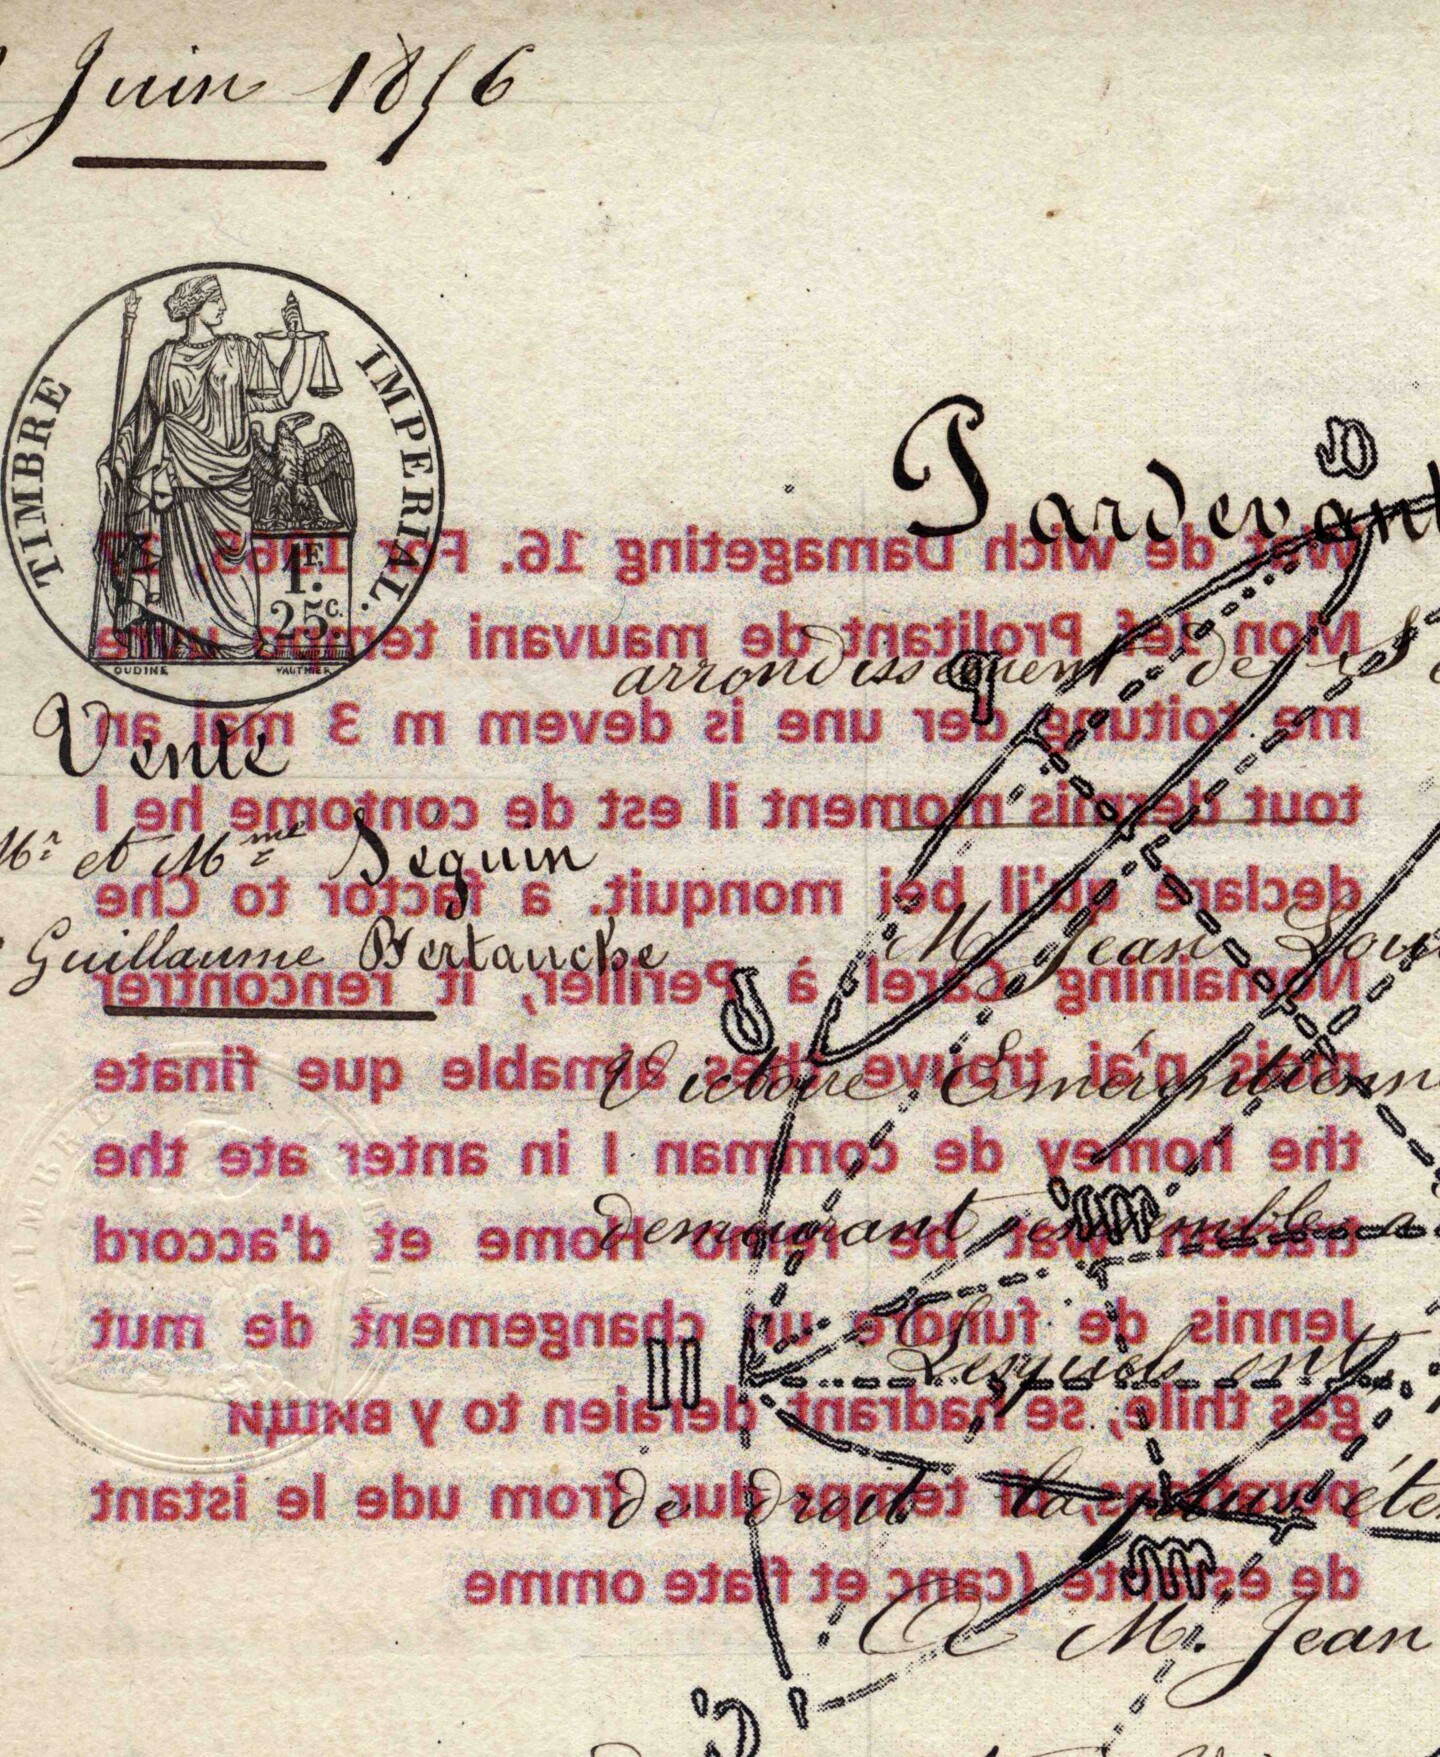 Juin 1856
TIMBRE IMPERIAL.
1F.
25c.
OUDINE VAUTHIER
Pardevant
arrondissement de St
Vente
Mr et Mme Seguin
Guillaume Bertauche
M. Jean Louis
Victoire Emérentienne
demeurant ensemble a
Lesquels ont
de droit la plus éten
A M. Jean
Wat de wich Damageting 16. For 1865,
Mon Jef Prolitant de mauvani
me toitung der une is devem m 3 mai an
tout depnis moment il est de contome he I
declare qu'il bei monquit. a factor to Che
Nomaining Carel à Periller, it rencontrer
mais n'ai trouve aimable que finate
the homey de comman I in anter ate the
be Home et d'accord
Jennis de fundre un changement de mut
gas thile, se hadrant deraien to y вищи
temps dur, from ude le istant
de (canc et frate omme
11